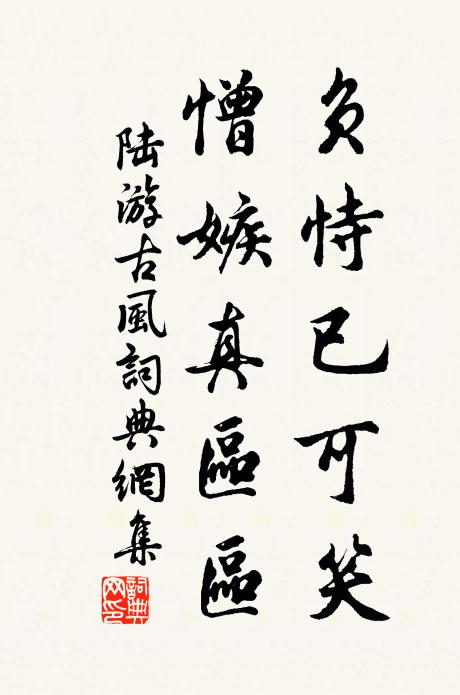 负恃已可笑
憎嫉真區區
陆游古風詞典網集
詞典网印